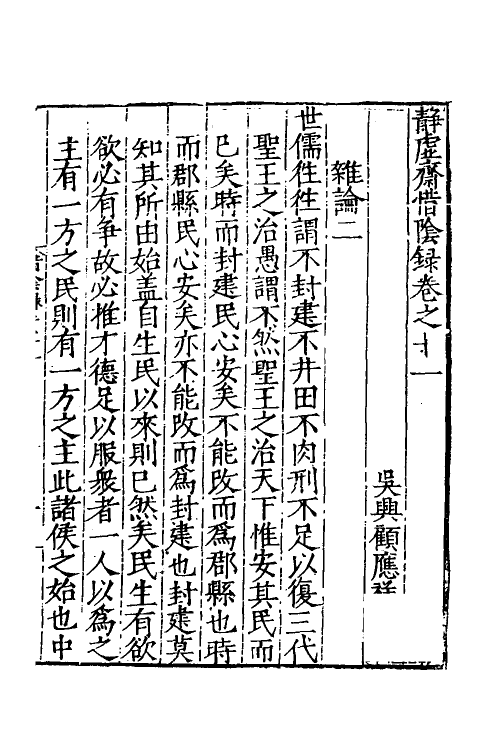 靜虛齋惜陰録卷之十一
吳興顧應祥
雜論二
世儒徃徃謂不封建不井田不肉刑不足以復三代
聖王之治愚謂不然聖王之治天下惟安其民而
已矣時而封建民心安矣不能改而爲郡縣也時
而郡縣民心安矣亦不能改而爲封建也封建莫
知其所由始盖自生民以來則已然矣民生有欲
欲必有爭故必推才德足以服衆者一人以爲之
主有一方之民則有一方之主此諸侯之始也中